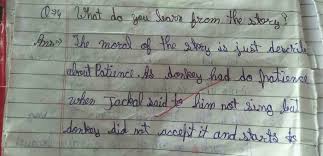 Q→4 What do you learn from the story?
Ans→ The moral of the story is just describe
about Patience. As donkey had do patience
when Jackal said to him not sing but
donkey did not accept it and starts to